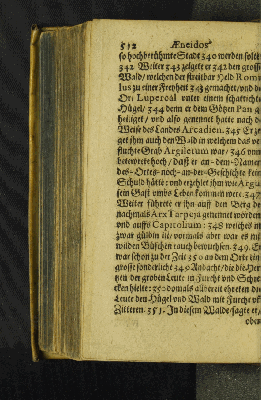 512 Æneidos
so hochberühmte Stadt 340 werden solte
342 Weiter 343 zeigte er 342 den grosse
Wald/ welchen der streitbar Held Romu
lus zu einer Freyheit 343 gemacht/ und de
Or: Lupercal unter einem schattichte
Hügel/ 344 denn er dem Götzen Pan ge
heiliget/ und also genennet hatte nach de
Weise des Landes Arcadien. 345 Er ze
get ihm auch den Wald in welchem das ve
fluchte Grab Argiletum war/ 346 unn
betewrete hoch/ daß er an-dem-Namen
des-Ortes-noch-an-der-Geschichte kein
Schuld hätte: und erzehlet ihm wie Argus
sein Gast umbs Leben kommen wer. 347
Weiter führete er ihn auff den Berg de
nachmals Arx Tarpeja genennet worden
und auffs Capitolium: 348 welches nu
zwar gülden ist/ vormals aber war es mi
wilden Büschen rauch bewachsen. 349. Es
war schon zu der Zeit 350 an dem Orte ein
grosse sonderliche 349 Andacht/ die die Her
tzen der groben Leute in Furcht und Schre
cken hielte: 350 domals allbereit ehreten die
Leute den Hügel und Wald mit Furcht und
Zitteren. 351. In diesem Walde/ sagte er/
oben